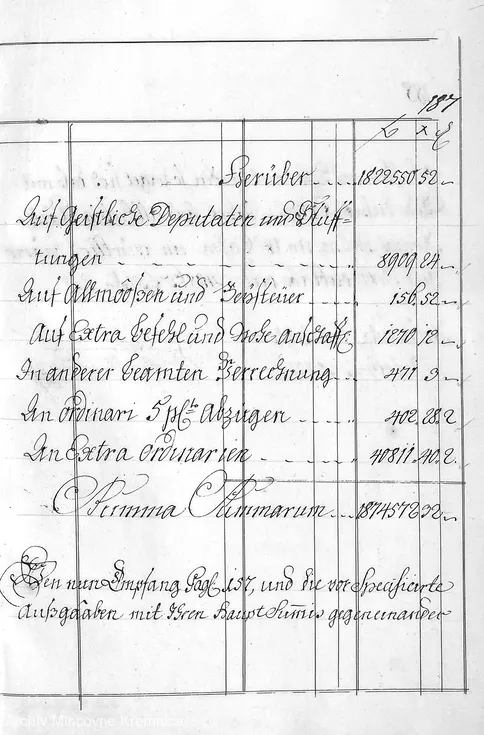 187
f x d
Herüber .... 1822550 52 –
Auf Geistliche Deputaten und Stüff=
tungen - - - - - - - - - 8909 24 –
Auf Allmoosen und Beÿsteuer .... 156 52 –
Auf Extra befehl und hohe anschaff: 1270 12 –
In anderer beamten Verrechnung ... 471 3 –
An ordinari 5 p C:to Abzügen ..... 402 28 2
An Extra ordinarien - - - - - 40811 40 2
Summa Summarum .... 1874572 32 –
Den nun Empfang Pag: 157, und die vor Specificirte
Außgaaben mit Ihren Haupt Sum̄is gegeneinander
Archív Mincovne Kremnica